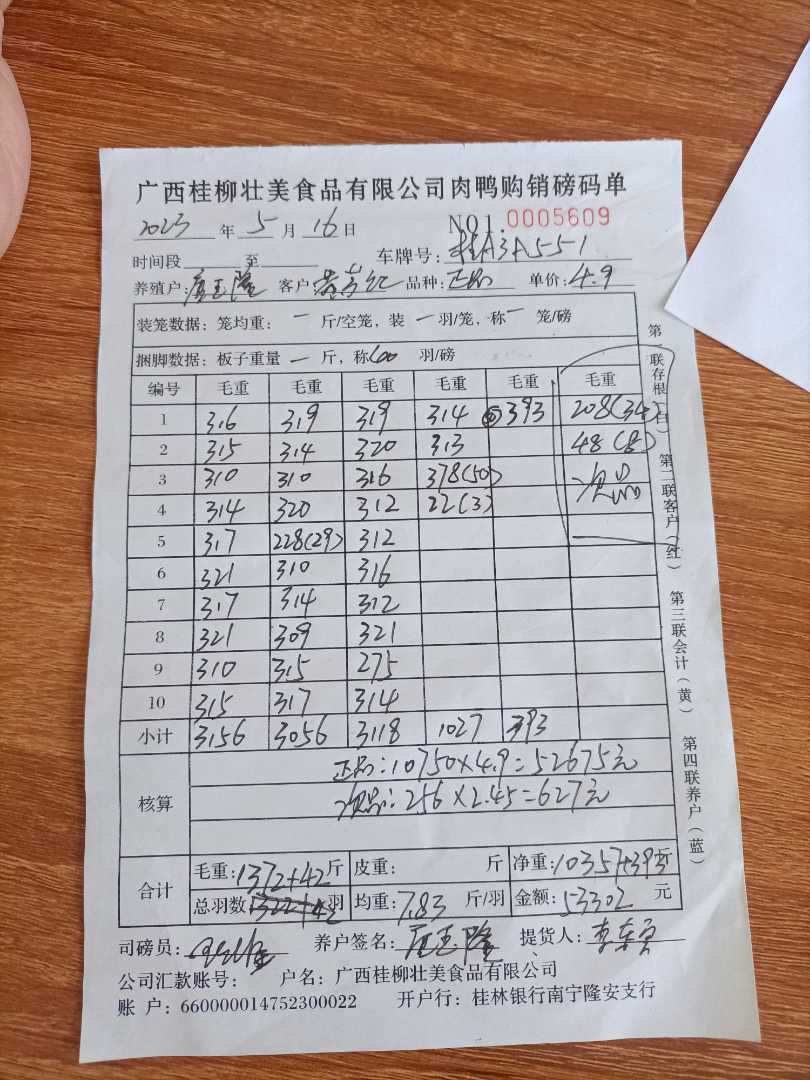 广西桂柳壮美食品有限公司肉鸭购销磅码单
2023 年 5 月 16 日 NO1.0005609
时间段 至 车牌号: 桂A3A551
养殖户: 客户: 品种: 正品 单价: 4.9
装笼数据: 笼均重: 一 斤/空笼, 装 一 羽/笼, 称 一 笼/磅
捆脚数据: 板子重量 一 斤, 称 羽/磅
编号 毛重 毛重 毛重 毛重 毛重 毛重
1 316 319 319 314 393 208(34)
2 315 314 320 313 48(8)
3 310 310 316 378(50) 次品
4 314 320 312 22(3)
5 317 228(29) 312
6 321 310 316
7 317 314 312
8 321 309 321
9 310 315 275
10 315 317 314
小计 3156 3056 3118 1027 393
核算 正品: 10750×4.9=52675元
次品: 256×2.45=627元
合计 毛重: 1372+42 斤 皮重: 斤 净重: 10357+393 斤
总羽数 1322+42 羽 均重: 7.83 斤/羽 金额: 53302 元
司磅员: 养户签名: 提货人:
公司汇款账号: 户名: 广西桂柳壮美食品有限公司
账 户: 660000014752300022 开户行: 桂林银行南宁隆安支行
第一联存根(白) 第二联客户(红) 第三联会计(黄) 第四联养户(蓝)